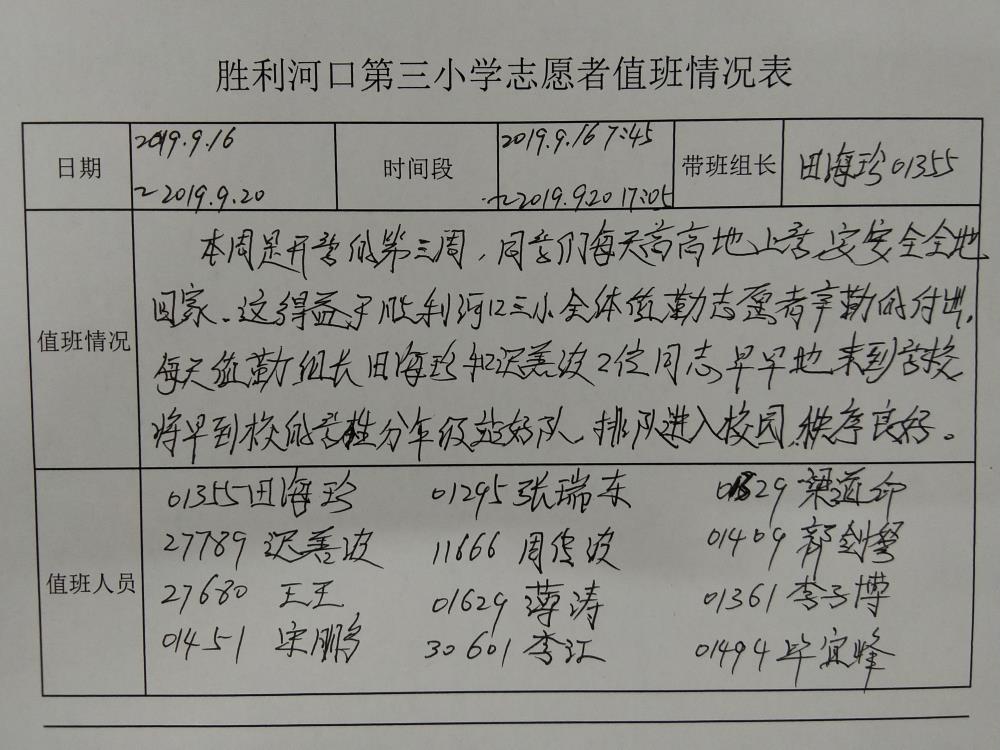 胜利河口第三小学志愿者值班情况表
日期 2019.9.16 ~2019.9.20 时间段 2019.9.16 7:45 ~2019.9.20 17:05 带班组长 田海珍01355
值班情况
本周是开学的第三周,同学们每天高高地上学,安安全全地
回家、这得益于胜利河口三小全体值勤志愿者辛勤的付出,
每天值勤组长田海珍和迟善波2位同志早早地来到学校
将早到校的学生分年级站好队,排队进入校园,秩序良好。
值班人员
01355田海珍 01295张瑞东 01329梁道
27789 迟善波 11666 周传波 01409 郭剑
27680 王王 01629 薄涛 01361 李子博
01451 宋鹏 30601 李江 01494 毕宜峰